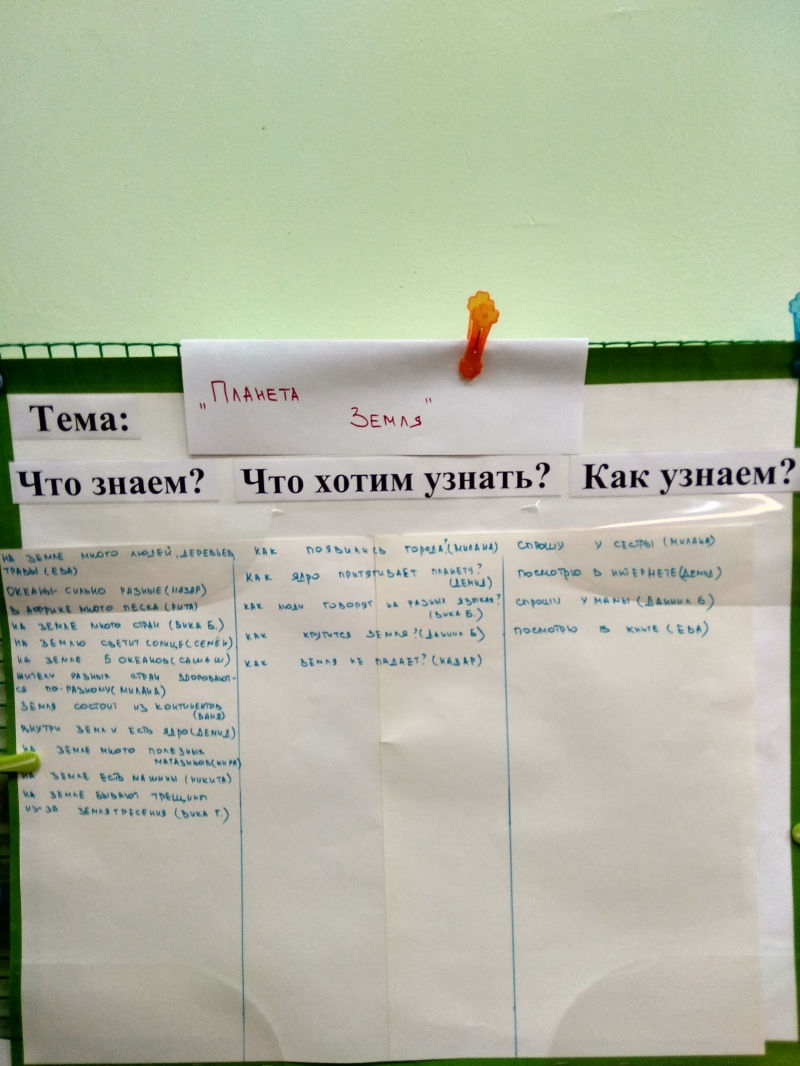 „Планета
Земля"
Тема:
Что знаем?
Что хотим узнать?
Как узнаем?
НА ЗЕМЛЕ МНОГО ЛЮДЕЙ, ДЕРЕВЬЕВ,
ТРАВЫ (ЕВА)
ОКЕАНЫ СИЛЬНО РАЗНЫЕ (НАЗАР)
В АФРИКЕ МНОГО ПЕСКА (РИТА)
НА ЗЕМЛЕ МНОГО СТРАН (ВИКА Б.)
НА ЗЕМЛЮ СВЕТИТ СОЛНЦЕ (СЕМЁН)
НА ЗЕМЛЕ 5 ОКЕАНОВ (САША Ш)
ЖИТЕЛИ РАЗНЫХ СТРАН ЗДОРОВАЮТ-
СЯ ПО-РАЗНОМУ (МИЛАНА)
ЗЕМЛЯ СОСТОИТ ИЗ КОНТИНЕНТОВ
(ВАНЯ)
ВНУТРИ ЗЕМЛИ ЕСТЬ ЯДРО (ДЕМИД)
НА ЗЕМЛЕ МНОГО ПОЛЕЗНЫХ
МАГАЗИНОВ (КИРА)
НА ЗЕМЛЕ ЕСТЬ МАШИНЫ (НИКИТА)
НА ЗЕМЛЕ БЫВАЮТ ТРЕЩИНЫ
ИЗ-ЗА ЗЕМЛЯТРЕСЕНИЯ (ВИКА Г.)
КАК ПОЯВИЛИСЬ ГОРОДА? (МИЛАНА)
КАК ЯДРО ПРИТЯГИВАЕТ ПЛАНЕТУ?
(ДЕМИД)
КАК ЛЮДИ ГОВОРЯТ НА РАЗНЫХ ЯЗЫКАХ?
(ВИКА Б.)
КАК КРУТИТСЯ ЗЕМЛЯ? (ДАНИИЛ Б)
КАК ЗЕМЛЯ НЕ ПАДАЕТ? (НАЗАР)
СПРОШУ У СЕСТРЫ (МИЛАНА)
ПОСМОТРЮ В ИНТЕРНЕТЕ (ДЕМИД)
СПРОШУ У МАМЫ (ДАНИИЛ Б)
ПОСМОТРЮ В КНИГЕ (ЕВА)